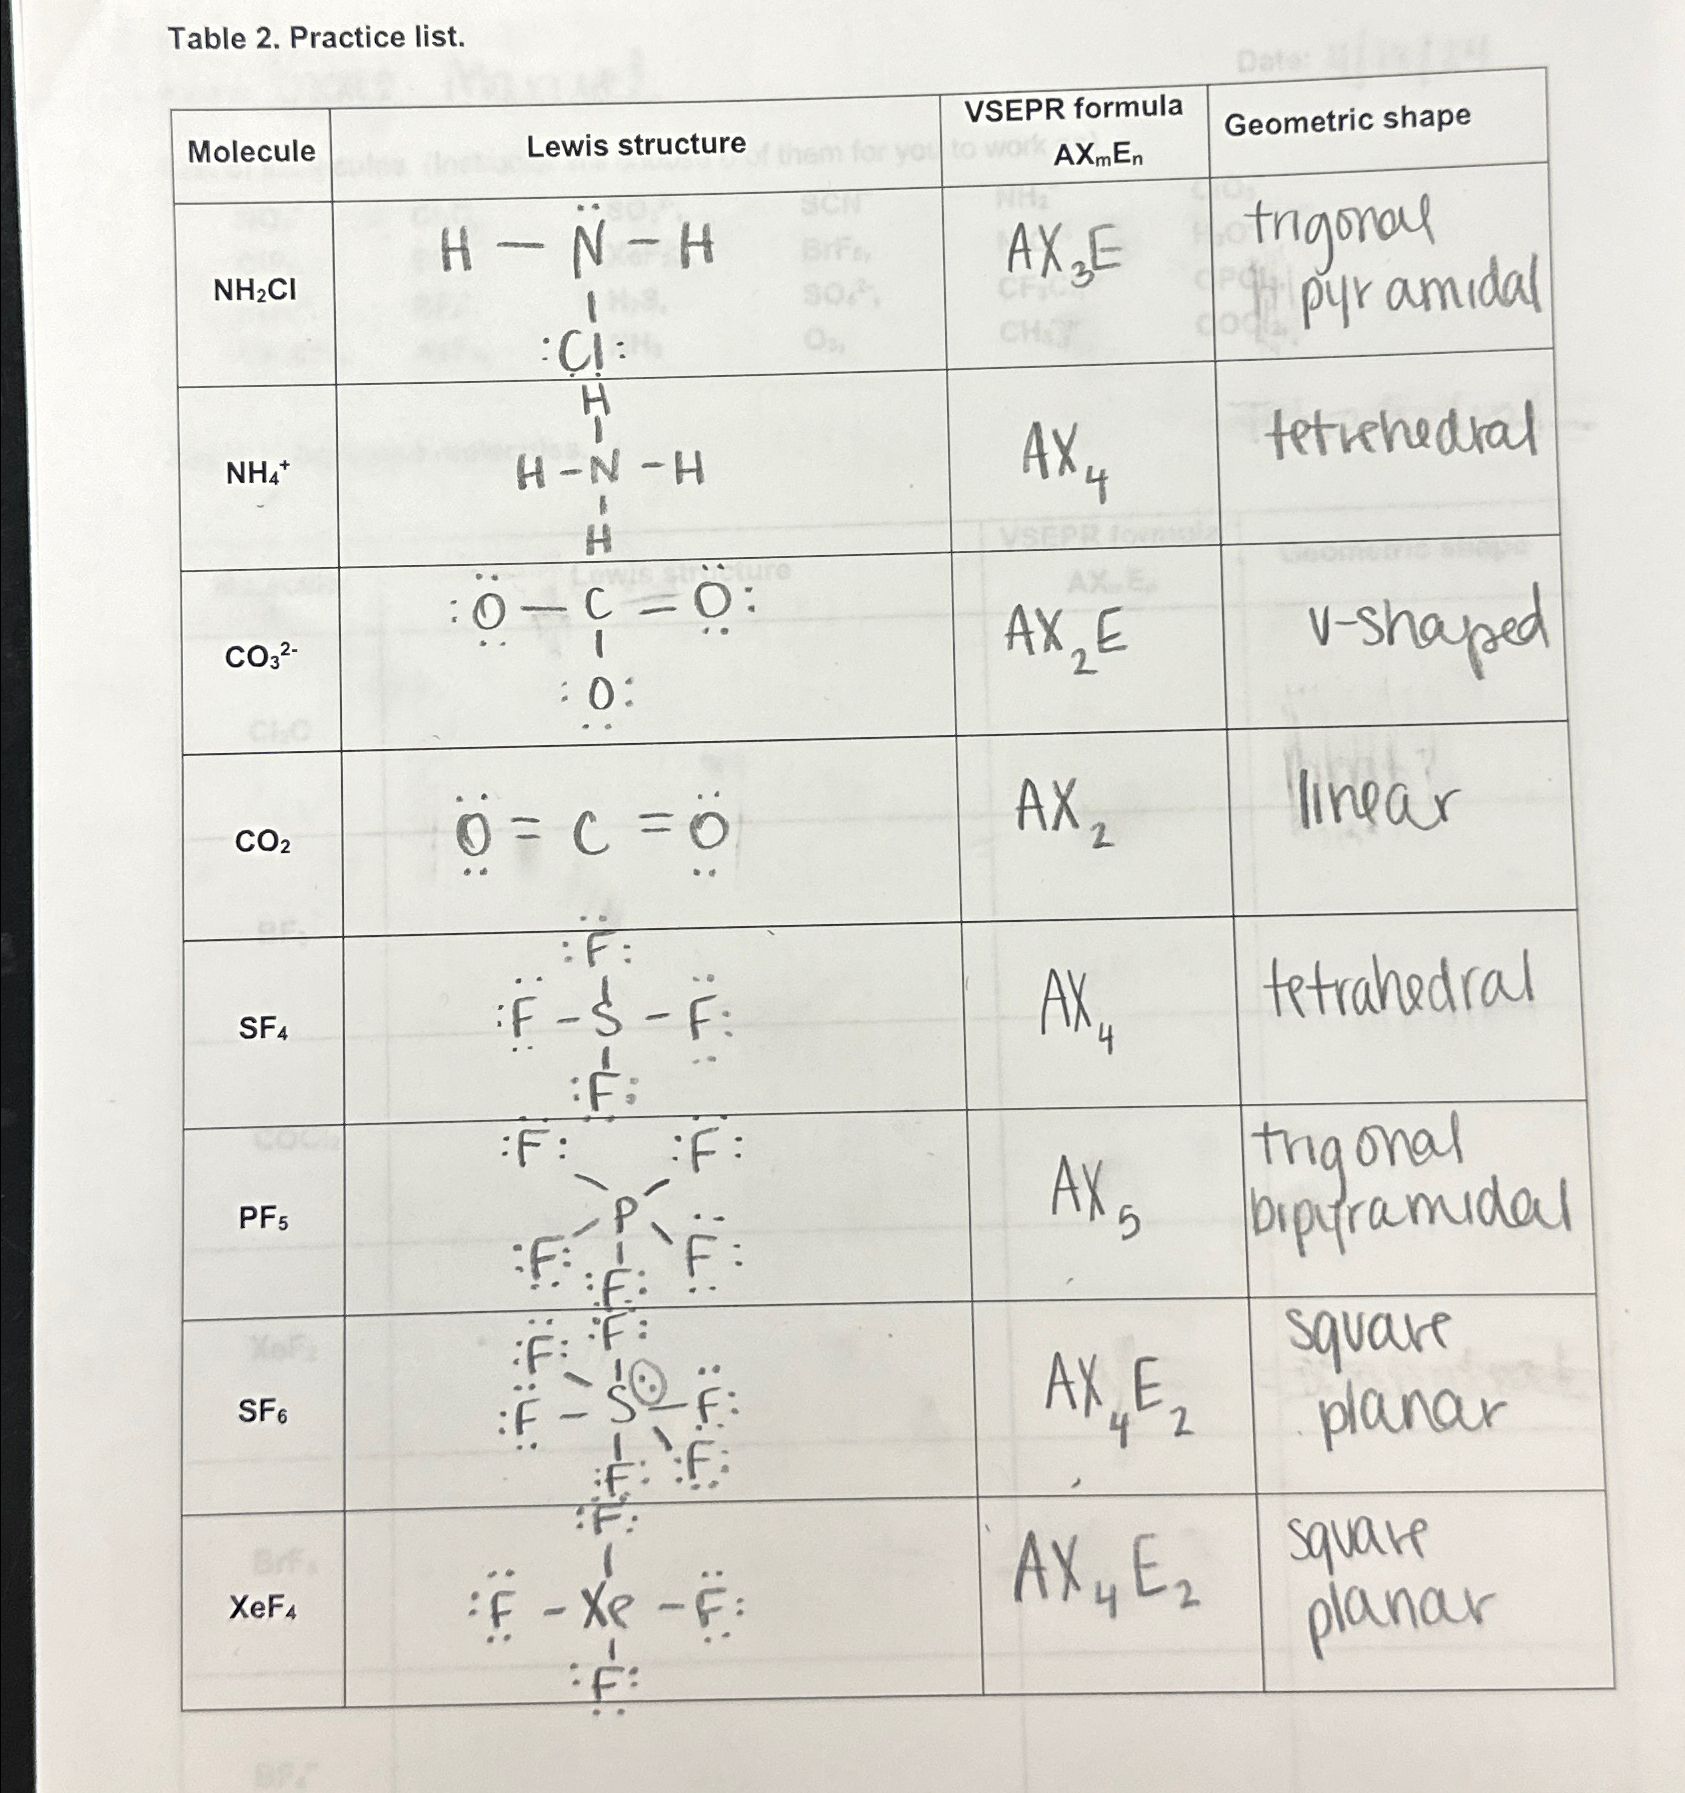 Table 2. Practice list.
Molecule
Lewis structure
VSEPR formula
AXmEn
Geometric shape
NH₂Cl
H — N̈ — H
|
:Cl:
AX₃E
trigonal
pyramidal
NH₄⁺
H
|
H - N - H
|
H
AX₄
tetrehedral
CO₃²⁻
:O — C = O:
|
:O:
AX₂E
v-shaped
CO₂
O = C = O
AX₂
linear
SF₄
:F:
|
:F - S - F:
|
:F:
AX₄
tetrahedral
PF₅
:F: :F:
P
:F: :F: F:
AX₅
trigonal
bipyramidal
SF₆
:F: :F:
:F - S - F:
:F: :F:
AX₄E₂
square
planar
XeF₄
:F:
|
:F - Xe - F:
|
:F:
AX₄E₂
square
planar